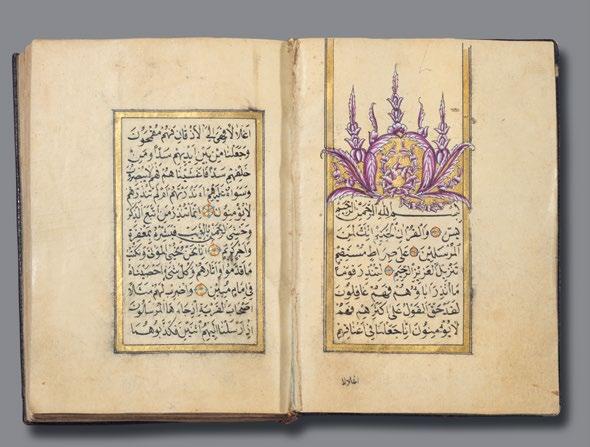 بسم الله الرحمن الرحيم
يس والقران الحكيم انك لمن
المرسلين على صراط مستقيم
تنزيل العزيز الرحيم لتنذر قوما
ما انذر اباؤهم فهم غافلون
لقد حق القول على اكثرهم فهم
لا يؤمنون انا جعلنا في اعناقهم
اغلالا
اغلالا فهي الى الاذقان فهم مقمحون
وجعلنا من بين ايديهم سدا ومن
خلفهم سدا فاغشيناهم فهم لا يبصرون
وسواء عليهم ءانذرتهم ام لم تنذرهم
لا يؤمنون انما تنذر من اتبع الذكر
وخشي الرحمن بالغيب فبشره بمغفرة
واجر كريم انا نحن نحيي الموتى ونكتب
ما قدموا واثارهم وكل شيء احصيناه
في امام مبين واضرب لهم مثلا
اصحاب القرية اذ جاءها المرسلون
اذ ارسلنا اليهم اثنين فكذبوهما